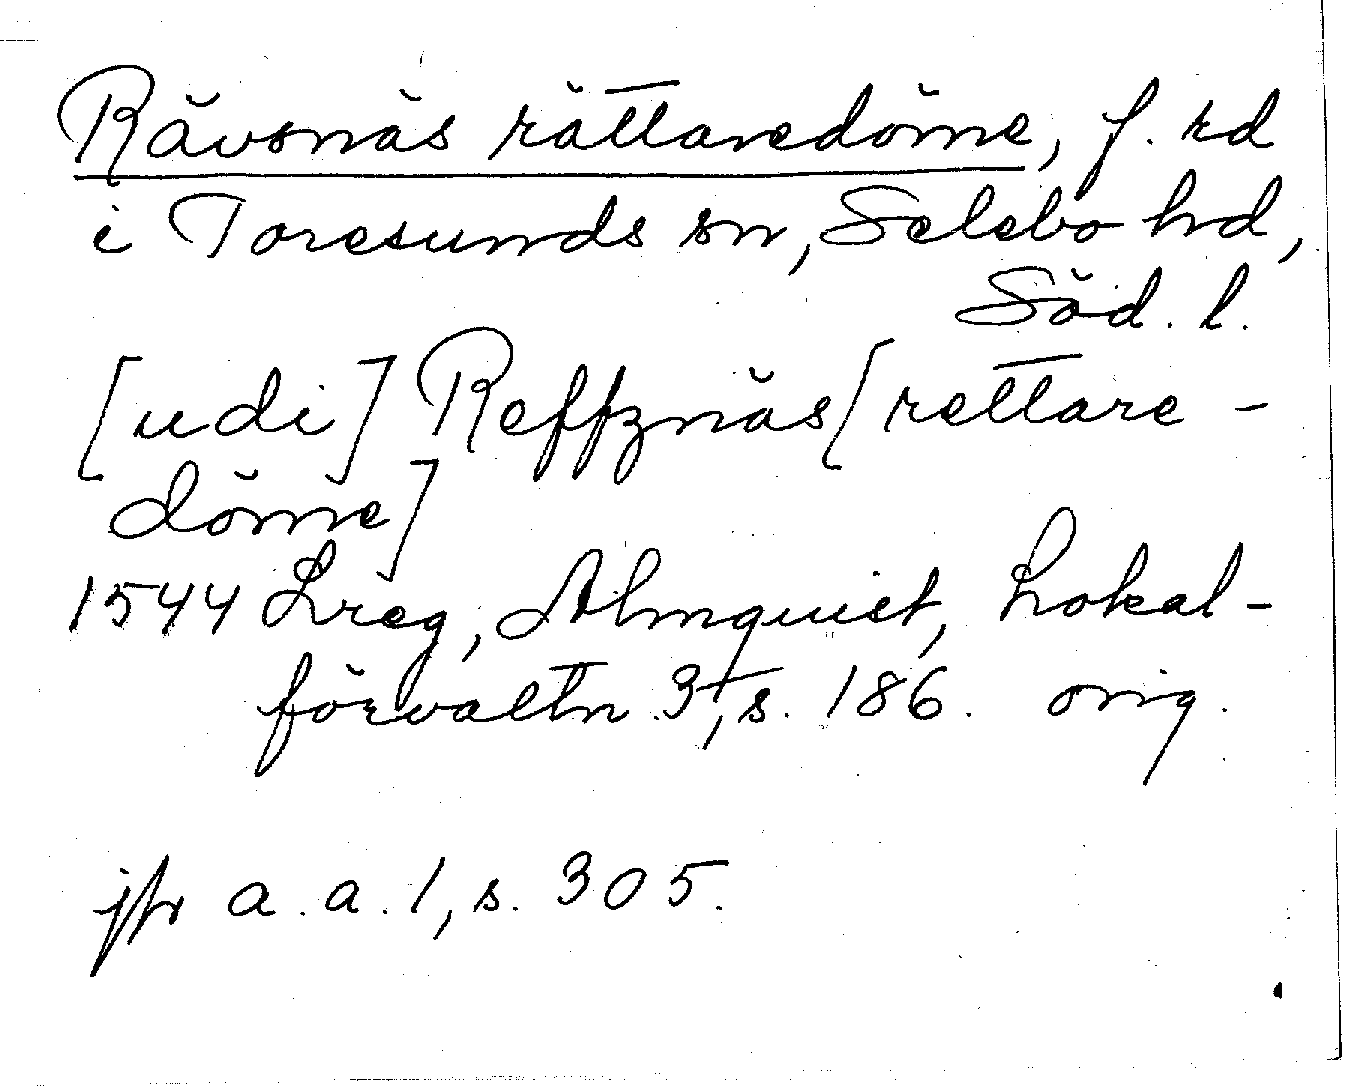 Rävsnäs rättaredöme, f. rd
i Toresunds sn, Selebo hd,
Söd. l.
[udi] Reffznäs [rettare-
döme]
1544 Lreg, Almquist, Lokal-
förvaltn 3, s. 186. orig.
jfr a. a. 1, s. 305.